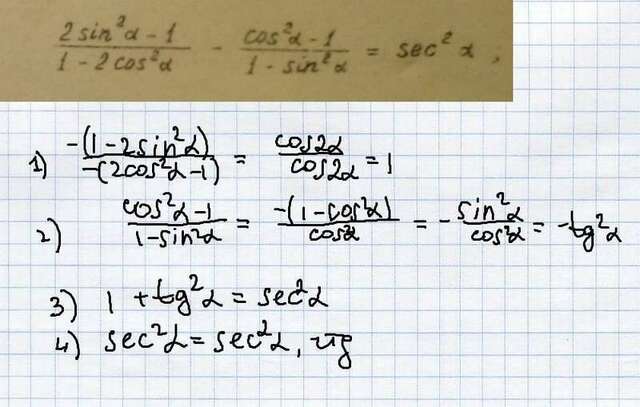 (2sin²α - 1)/(1 - 2cos²α) - (cos²α - 1)/(1 - sin²α) = sec²α;
1) -(1-2sin²α)/-(2cos²α-1) = cos2α/cos2α = 1
2) (cos²α-1)/(1-sin²α) = -(1-cos²α)/cos²α = -sin²α/cos²α = -tg²α
3) 1 + tg²α = sec²α
4) sec²α = sec²α,